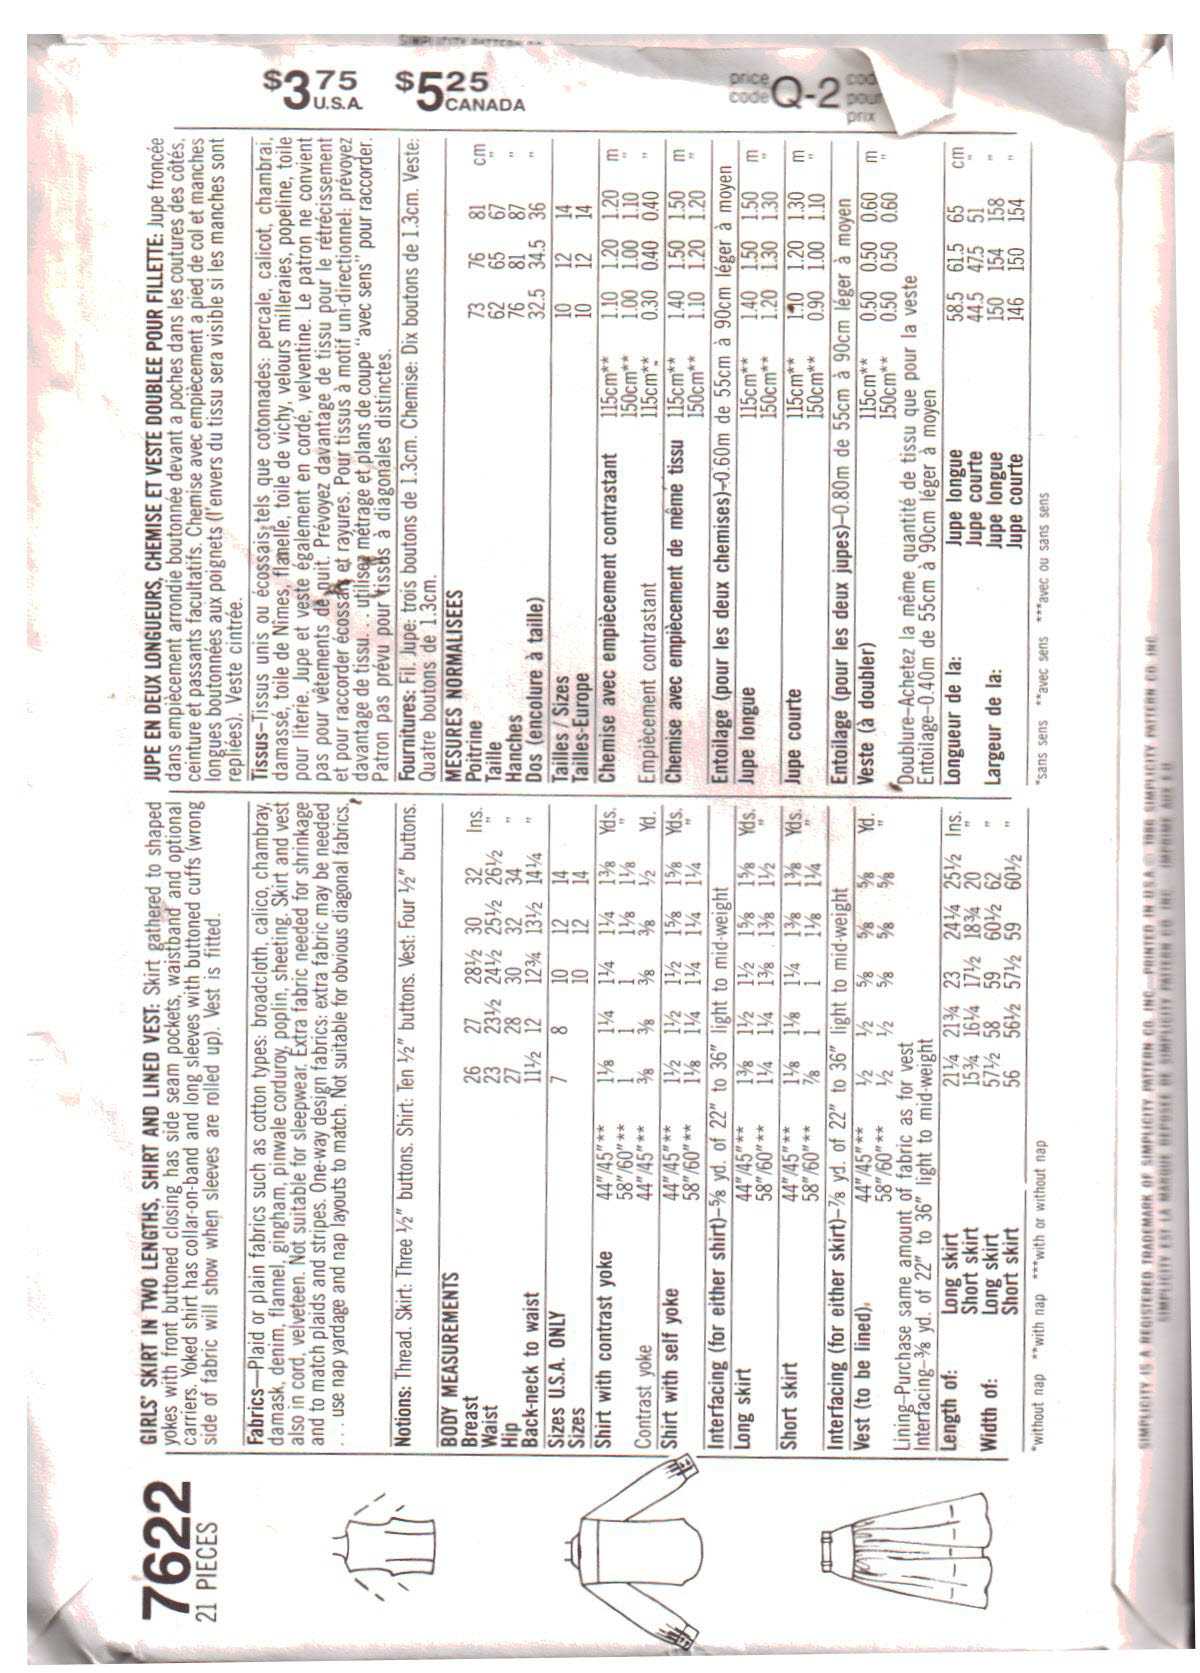 7622
21 PIECES
GIRLS' SKIRT IN TWO LENGTHS, SHIRT AND LINED VEST: Skirt gathered to shaped
yokes with front buttoned closing has side seam pockets, waistband and optional
carriers. Yoked shirt has collar-on-band and long sleeves with buttoned cuffs (wrong
side of fabric will show when sleeves are rolled up). Vest is fitted.
Fabrics—Plaid or plain fabrics such as cotton types: broadcloth, calico, chambray,
damask, denim, flannel, gingham, pinwale corduroy, poplin, sheeting. Skirt and vest
also in cord, velveteen. Not suitable for sleepwear. Extra fabric needed for shrinkage
and to match plaids and stripes. One-way design fabrics: extra fabric may be needed
. . . use nap yardage and nap layouts to match. Not suitable for obvious diagonal fabrics.
Notions: Thread. Skirt: Three ½" buttons. Shirt: Ten ½" buttons. Vest: Four ½" buttons.
BODY MEASUREMENTS
Breast 26 27 28½ 30 32 Ins.
Waist 23 23½ 24½ 25½ 26½ "
Hip 27 28 30 32 34 "
Back-neck to waist 11½ 12 12¾ 13½ 14¼ "
Sizes U.S.A. ONLY 7 8 10 12 14
Sizes 10 12 14
Shirt with contrast yoke 44"/45"** 1⅛ 1¼ 1¼ 1¼ 1⅜ Yds.
58"/60"** 1 1 1 1⅛ 1⅛ "
Contrast yoke 44"/45"** ⅜ ⅜ ⅜ ⅜ ½ Yd.
Shirt with self yoke 44"/45"** 1½ 1½ 1½ 1⅝ 1⅝ Yds.
58"/60"** 1⅛ 1¼ 1¼ 1¼ 1¼ "
Interfacing (for either shirt)—⅝ yd. of 22" to 36" light to mid-weight
Long skirt 44"/45"** 1⅜ 1½ 1½ 1⅝ 1⅝ Yds.
58"/60"** 1¼ 1¼ 1⅜ 1⅜ 1½ "
Short skirt 44"/45"** 1⅛ 1⅛ 1¼ 1⅜ 1⅜ Yds.
58"/60"** ⅞ 1 1 1⅛ 1¼ "
Interfacing (for either skirt)—⅞ yd. of 22" to 36" light to mid-weight
Vest (to be lined) 44"/45"** ½ ½ ⅝ ⅝ ⅝ Yd.
58"/60"** ½ ½ ⅝ ⅝ ⅝ "
Lining—Purchase same amount of fabric as for vest
Interfacing—⅜ yd. of 22" to 36" light to mid-weight
Length of: Long skirt 21¼ 21¾ 23 24¼ 25½ Ins.
Short skirt 15¾ 16¼ 17½ 18¾ 20 "
Width of: Long skirt 57½ 58 59 60½ 62 "
Short skirt 56 56½ 57½ 59 60½ "
*without nap **with nap ***with or without nap
$3.75 U.S.A.
$5.25 CANADA
price code Q-2 code pour prix
JUPE EN DEUX LONGUEURS, CHEMISE ET VESTE DOUBLEE POUR FILLETTE: Jupe froncée
dans empiècement arrondie boutonnée devant a poches dans les coutures des côtés,
ceinture et passants facultatifs. Chemise avec empiècement a pied de col et manches
longues boutonnées aux poignets (l'envers du tissu sera visible si les manches sont
repliées). Veste cintrée.
Tissus—Tissus unis ou écossais tels que cotonnades: percale, calicot, chambrai,
damassé, toile de Nîmes, flanelle, toile de vichy, velours milleraies, popeline, toile
pour literie. Jupe et veste également en cordé, velventine. Le patron ne convient
pas pour vêtements de nuit. Prévoyez davantage de tissu pour le rétrécissement
et pour raccorder écossais et rayures. Pour tissus à motif uni-directionnel: prévoyez
davantage de tissu. . . utilisez métrage et plans de coupe "avec sens" pour raccorder.
Patron pas prévu pour tissus à diagonales distinctes.
Fournitures: Fil. Jupe: trois boutons de 1.3cm. Chemise: Dix boutons de 1.3cm. Veste:
Quatre boutons de 1.3cm.
MESURES NORMALISEES
Poitrine 73 76 81 cm
Taille 62 65 67 "
Hanches 76 81 87 "
Dos (encolure à taille) 32.5 34.5 36 "
Tailles / Sizes 10 12 14
Tailles-Europe 10 12 14
Chemise avec empiècement contrastant 115cm** 1.10 1.20 1.20 m
150cm** 1.00 1.00 1.10 "
Empiècement contrastant 115cm** 0.30 0.40 0.40 "
Chemise avec empiècement de même tissu 115cm** 1.40 1.50 1.50 m
150cm** 1.10 1.20 1.20 "
Entoilage (pour les deux chemises)—0.60m de 55cm à 90cm léger à moyen
Jupe longue 115cm** 1.40 1.50 1.50 m
150cm** 1.20 1.30 1.30 "
Jupe courte 115cm** 1.10 1.20 1.30 m
150cm** 0.90 1.00 1.10 "
Entoilage (pour les deux jupes)—0.80m de 55cm à 90cm léger à moyen
Veste (à doubler) 115cm** 0.50 0.50 0.60 m
150cm** 0.50 0.50 0.60 "
Doublure—Achetez la même quantité de tissu que pour la veste
Entoilage—0.40m de 55cm à 90cm léger à moyen
Longueur de la: Jupe longue 58.5 61.5 65 cm
Jupe courte 44.5 47.5 51 "
Largeur de la: Jupe longue 150 154 158 "
Jupe courte 146 150 154 "
*sans sens **avec sens ***avec ou sans sens
SIMPLICITY IS A REGISTERED TRADEMARK OF SIMPLICITY PATTERN CO. INC. PRINTED IN USA © 1986 SIMPLICITY PATTERN CO. INC.
SIMPLICITY EST LA MARQUE DEPOSEE DE SIMPLICITY PATTERN CO. INC. IMPRIME AUX E.U.